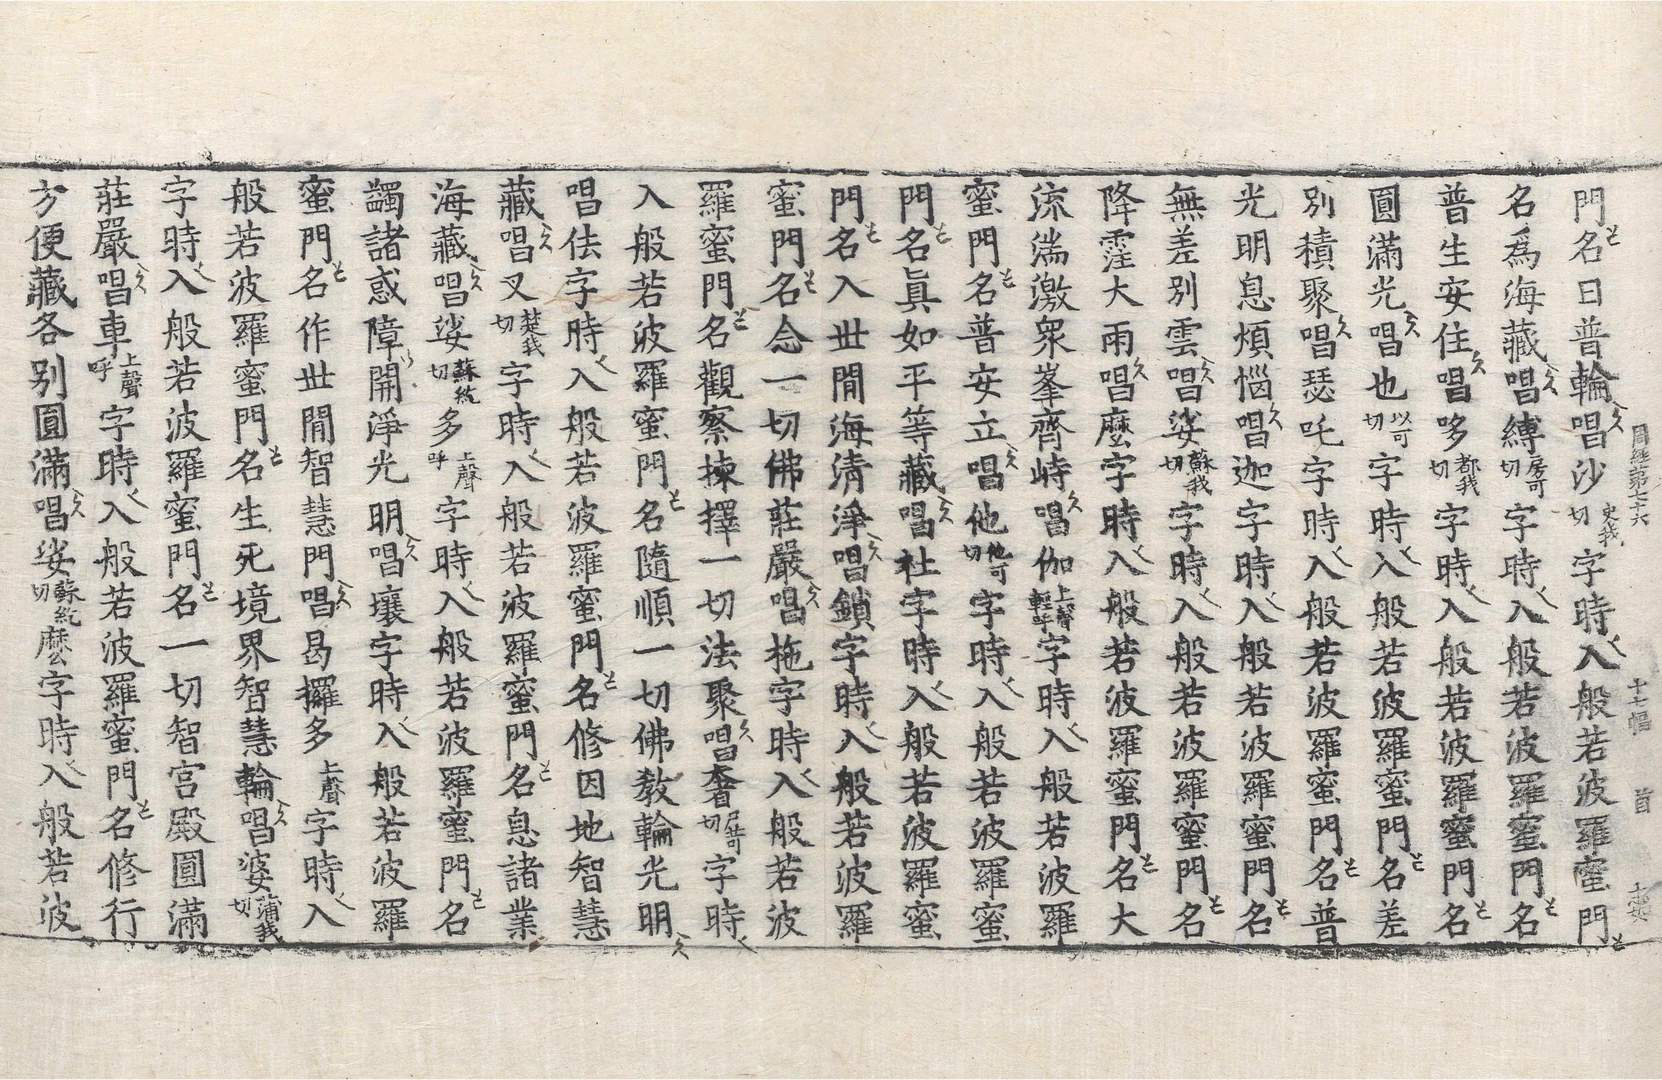 門名曰普輪唱沙史我切字時入般若波羅蜜門
周經第七十六 十七幅 首
名爲海藏唱縛房可切字時入般若波羅蜜門名
普生安住唱哆都我切字時入般若波羅蜜門名
圓滿光唱也以可切字時入般若波羅蜜門名差
別積聚唱瑟吒字時入般若波羅蜜門名普
光明息煩惱唱迦字時入般若波羅蜜門名
無差別雲唱娑蘇我切字時入般若波羅蜜門名
降霔大雨唱麼字時入般若波羅蜜門名大
流湍激衆峯齊峙唱伽上聲輕呼字時入般若波羅
蜜門名普安立唱他他可切字時入般若波羅蜜
門名眞如平等藏唱社字時入般若波羅蜜
門名入世間海清淨唱鎖字時入般若波羅
蜜門名念一切佛莊嚴唱柂字時入般若波
羅蜜門名觀察揀擇一切法聚唱奢尸苛切字時
入般若波羅蜜門名隨順一切佛教輪光明
唱佉字時入般若波羅蜜門名修因地智慧
藏唱叉楚我切字時入般若波羅蜜門名息諸業
海藏唱娑蘇紇切多上聲呼字時入般若波羅蜜門名
蠲諸惑障開淨光明唱壤字時入般若波羅
蜜門名作世間智慧門唱曷攞多上聲字時入
般若波羅蜜門名生死境界智慧輪唱婆蒲我切
字時入般若波羅蜜門名一切智宮殿圓滿
莊嚴唱車上聲呼字時入般若波羅蜜門名修行
方便藏各別圓滿唱娑蘇紇切麼字時入般若波